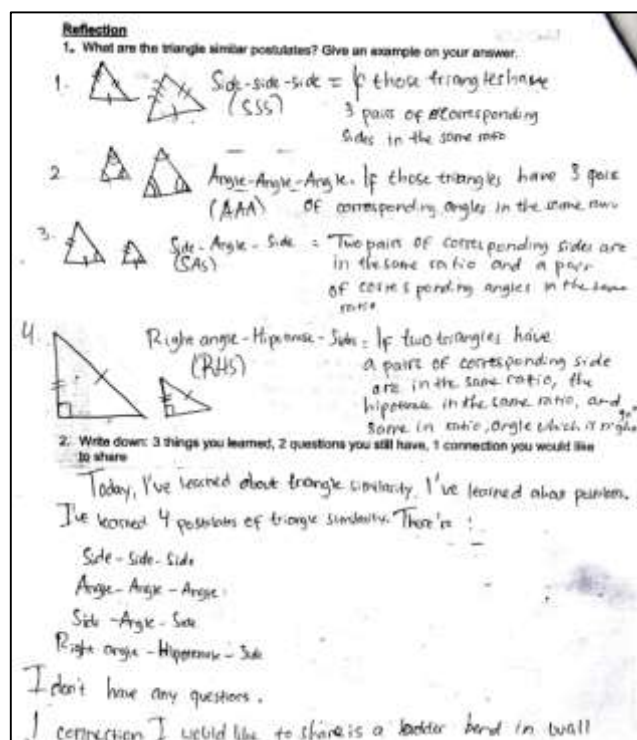 Reflection
1. What are the triangle similar postulates? Give an example on your answer.
1. Side-side-side = If those triangles have
(SSS) 3 pairs of corresponding
sides in the same ratio
2 Angle-Angle-Angle. If those triangles have 3 pair
(AAA) of corresponding angles in the same
3. Side-Angle-Side = Two pairs of corresponding sides are
(SAS) in the same ratio and a pair
of corresponding angles in the same
ratio
4. Right angle-Hipotenose-Side = If two triangles have
(RHS) a pairs of corresponding side
are in the same ratio, the
hipotenose in the same ratio, and
same in ratio, angle which is right
90°
2. Write down: 3 things you learned, 2 questions you still have, 1 connection you would like
to share
Today, I've learned about triangle similarity. I've learned about
I've learned 4 postulates of triangle similarity. There're :
Side-Side-Side
Angle-Angle-Angle
Side-Angle-Side
Right angle-Hipotenose-Side
I don't have any questions.
1 connection I would like to share is a ladder bend in wall